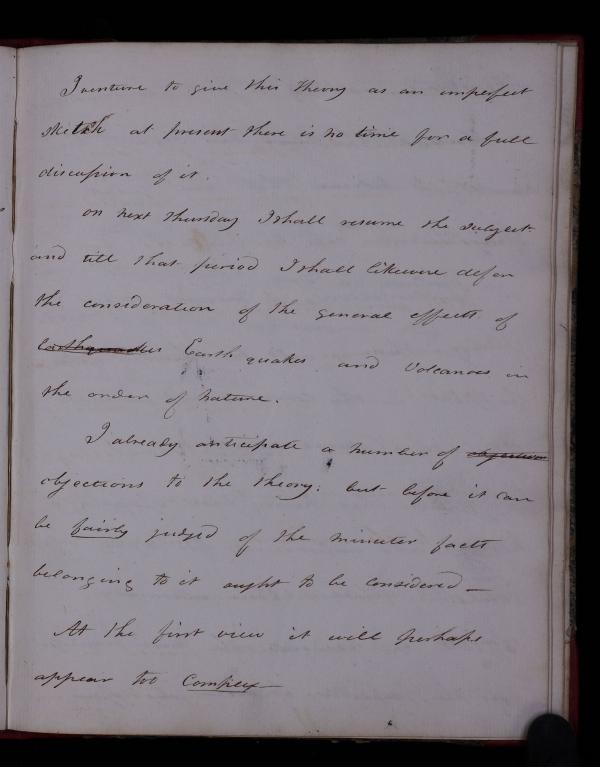 I venture to give this theory as an imperfect
sketch at present there is no time for a full
discussion of it.
on next thursday I shall resume the subject
and till that period I shall likewise defer
the consideration of the general effects of
Earthquakes Earth quakes and Volcanoes in
the order of nature.
I already anticipate a number of objections
objections to the theory: but before it can
be fairly judged of the minuter facts
belonging to it ought to be considered —
At the first view it will perhaps
appear too Complex —